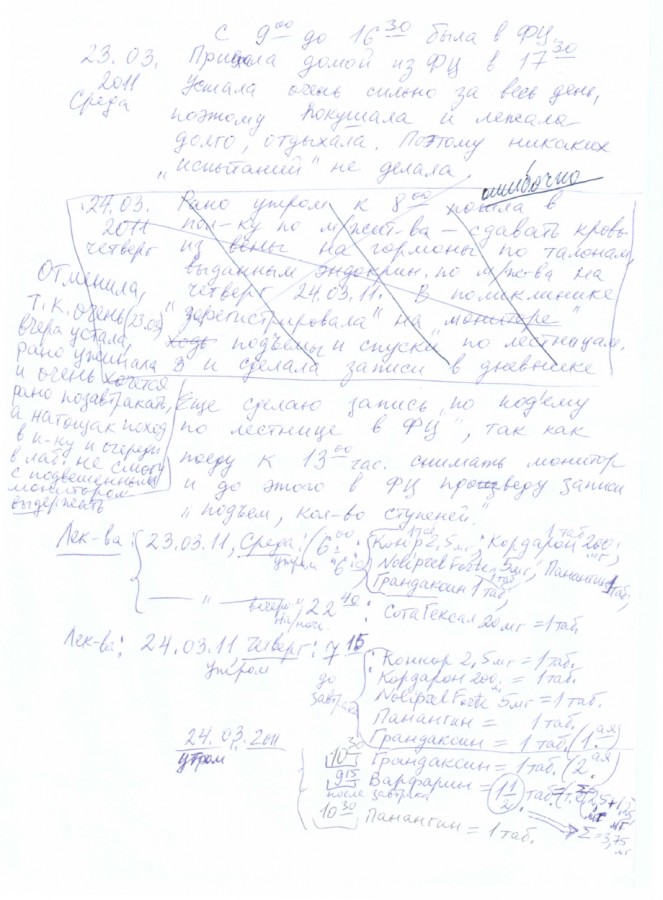 С 9⁰⁰ до 16³⁰ была в ФЦ.
23.03. Пришла домой из ФЦ в 17³⁰
2011 Устала очень сильно за весь день,
Среда поэтому покушала и лежала
долго, отдыхала. Поэтому никаких
„испытаний" не делала.
ошибочно
24.03. Рано утром к 8⁰⁰ пошла в
2011 пол-ку по м/жит-ва – сдавать кровь
четверг из вены на гормоны по талонам,
выданным эндокрин. по м/ж-ва на
четверг 24.03.11. В поликлинике
„зарегистрировала" на „мониторе"
ходь подъёмы и спуски по лестницам.
и сделала записи в дневнике
Отменила,
т.к. очень (23.03)
вчера устала,
рано ужинала
и очень хочется
рано позавтракать,
а натощак поход
в п-ку и очереди
в лаб. не смогу
с подвешенным
монитором
выдержать
Еще сделаю запись „по подъему
по лестнице в ФЦ", так как
поеду к 13⁰⁰ час. снимать монитор
и до этого в ФЦ произведу записи
„подъем, кол-во ступеней."
Лек-ва: 23.03.11, Среда: (6⁰⁰: Конкор 2,5 мг 1 таб; Кордарон 200 мг 1 таб;
утром Noliprel Forte 5 мг 1 таб, Панангин 1 таб,
Грандаксин 1 таб,
— " — вечером 22⁴⁰: СотаГексал 20 мг = 1 таб.
на ночь
Лек-ва: 24.03.11 Четверг: 7¹⁵: Конкор 2,5 мг = 1 таб.
утром до завтрака Кордарон 200 = 1 таб.
Noliprel Forte 5 мг = 1 таб.
Панангин = 1 таб.
Грандаксин = 1 таб. (1.ая)
24.03.2011 10³⁰ Грандаксин = 1 таб. (2.ая)
утром 9¹⁵ Варфарин = 1 1/2 таб.
после завтрака Σ = 3,75 мг
10³⁰ Панангин = 1 таб.